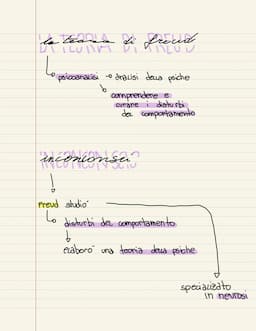 LA TEORIA DI FREUD
la teoria di freud
psicoanalisi → analisi della psiche
comprendere e
curare i disturbi
del comportamento
INCONSCIO
Freud studiò
disturbi del comportamento
elaborò una teoria della psiche
specializzato
in neurosi